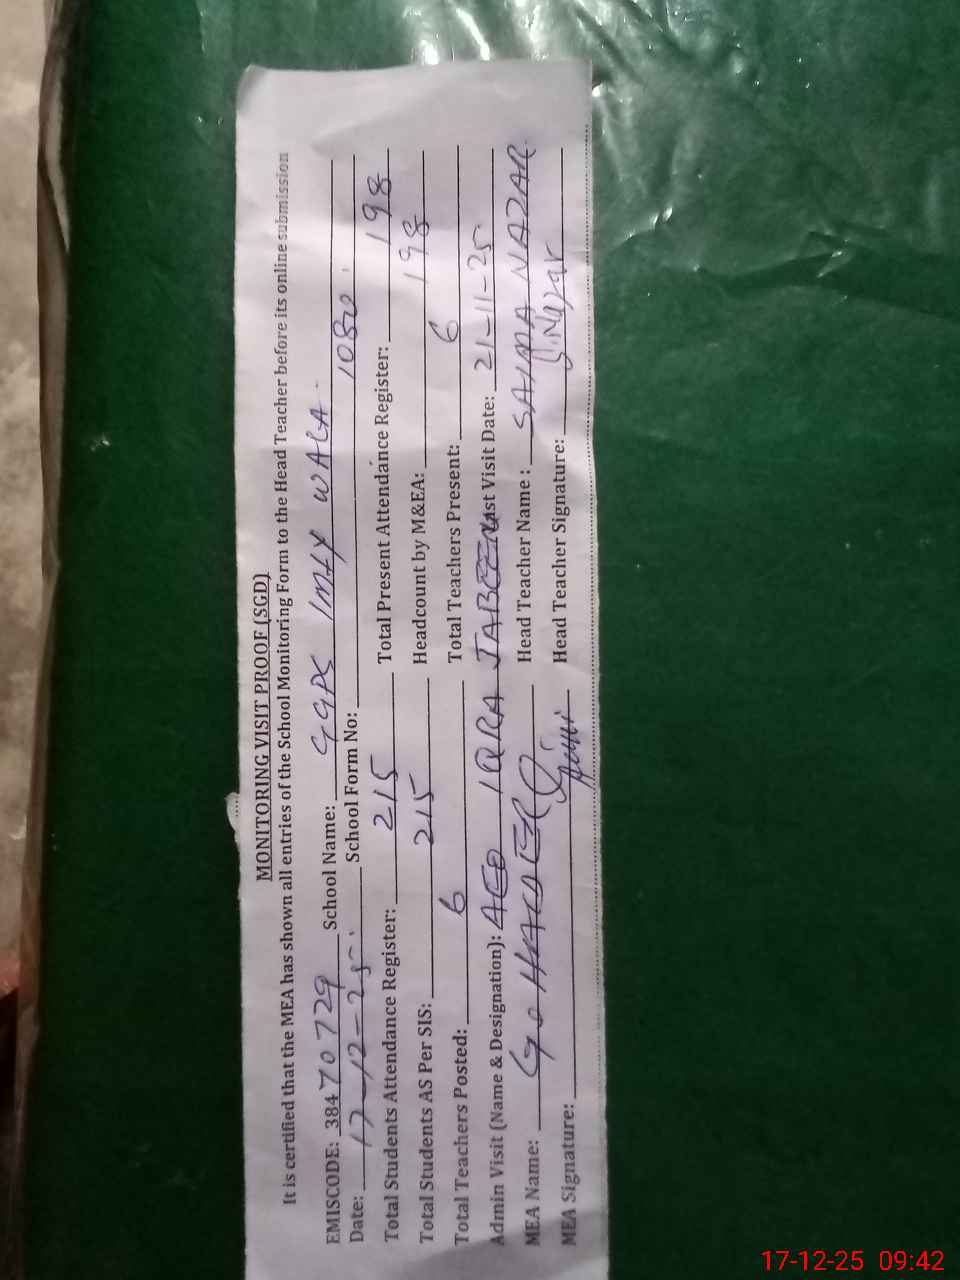 MONITORING VISIT PROOF (SGD)
It is certified that the MEA has shown all entries of the School Monitoring Form to the Head Teacher before its online submission
EMISCODE: 38470729 School Name: GGPS IMLY WALA
Date: 17-12-25. School Form No: 1080
Total Students Attendance Register: 215 Total Present Attendance Register: 198
Total Students AS Per SIS: 215 Headcount by M&EA: 198
Total Teachers Posted: 6 Total Teachers Present: 6
Admin Visit (Name & Designation): AEO IQRA JABEEN Last Visit Date: 21-11-25
MEA Name: Head Teacher Name : SAIMA NAZAR
MEA Signature: Head Teacher Signature: S.Nazar
17-12-25 09:42